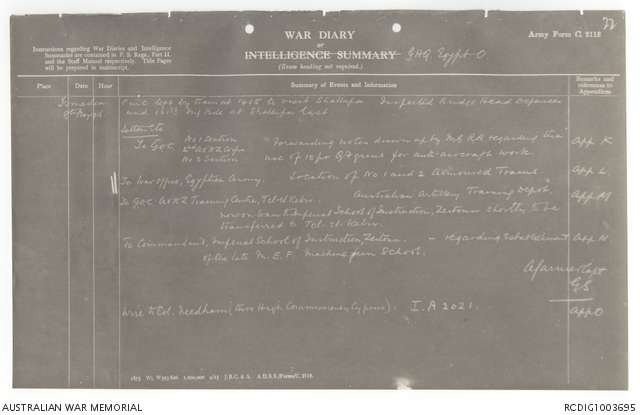 WAR DIARY
or
INTELLIGENCE SUMMARY
GHQ Egypt O
(Erase heading not required.)
Army Form C. 2118
77
Instructions regarding War Diaries and Intelligence
Summaries are contained in F. S. Regs., Part II.
and the Staff Manual respectively. Title Pages
will be prepared in manuscript.
Place Date Hour Summary of Events and Information Remarks and references to Appendices
Ismailia
8th May 1916
left by train at to visit Shallufa Inspected Bridge Head Defences
and at Shallufa East
Letters etc
To GOC No 1 Section
2nd ANZ Corps
No 3 Section
"Forwarding notes drawn up by MG RA regarding the
use of 18 pr QF guns for anti-aircraft work App K
To War office, Egyptian Army. Location of No 1 and 2 Armoured Trains App L.
To GOC ANZ Training Centre, Tel-el-Kebir. Australian Artillery Training Depot App M
now on loan to Imperial School of Instruction, Zeitoun shortly to be
transferred to Tel-el-Kebir.
To Commandant, Imperial School of Instruction, Zeitoun. - regarding establishment App N
of the late M.E.F. Machine Gun School.
Capt
GS
Wire to Col. Needham (thro High Commissioner Cyprus). I.A 2021. App O
1875 Wt. W593/826 1,000,000 4/15 J.B.C. & A. A.D.S.S./Forms/C. 2118.
AUSTRALIAN WAR MEMORIAL
RCDIG1003695